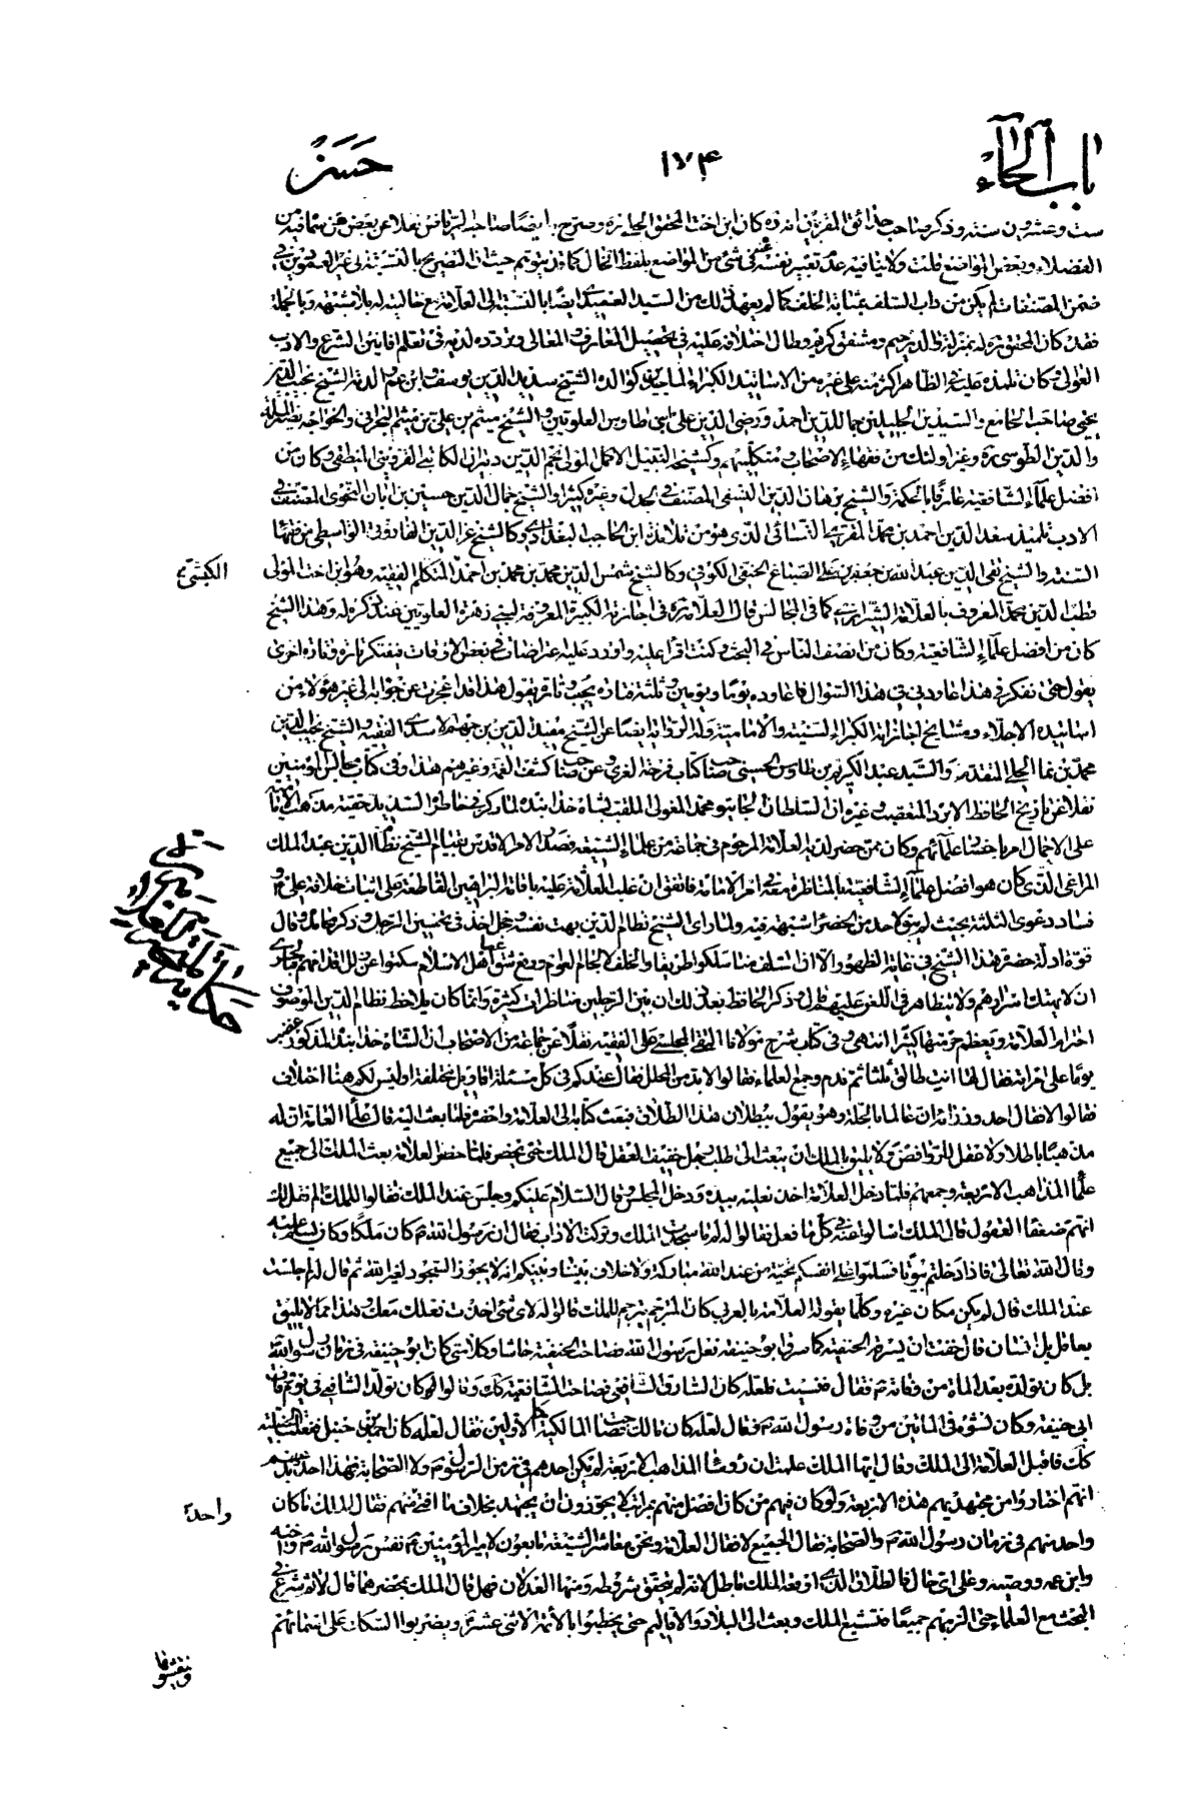 باب الحاء
١٧۴
حسن
ست وعشرين سنة وذكر صاحب حدائق المقربين انه ره كان ابن اخت المحقق الحلى ره وصرح به ايضا صاحب الرياض نقلا عن بعض
الفضلاء وبعض المواضع قلت ولا ينافيه عدم تعبير نفسه عنه فى شئ من المواضع بلفظ الخال كما قد يتوهم حيث ان التصريح بالنسبة الى غير العمودين فى
ضمن المصنفات لم يكن من داب السلف بمثابة الخلف كما لم يعهد ذلك من السيد العميدى ايضا بالنسبة الى العلامة مع خاليته له بلا شبهة وبالجملة
فقد كان المحقق ره له بمنزلة والد رحيم ومشفق كريم وطال اختلافه عليه فى تحصيل المعارف والمعالى وتردده لديه فى تعلم افانين الشرع والادب
العوالى وكان تلمذه عليه فى الظاهر اكثر منه على غيره من الاساتيد الكبراء كوالده الشيخ سديد الدين يوسف وابن عم والدته الشيخ نجيب الدين
يحيى صاحب الجامع والسيدين الجليلين جمال الدين احمد ورضى الدين على ابنى طاوس العلويين والشيخ ميثم بن على بن ميثم البحرانى والخواجه نصير الملة
والدين الطوسى ره وغير اولئك من فقهاء الاصحاب ومتكلميهم وكشيخه النبيل الاكمل المولى نجم الدين دبيران الكاتبى القزوينى المنطقى وكان من
افضل علماء الشافعية عارفا بالحكمة والشيخ برهان الدين النسفى المصنف فى الجدل وغيره كثيرا والشيخ جمال الدين حسين بن ايان النحوى المصنف فى
الادب تلميذ سعد الدين احمد بن محمد المقرى النسائى الذى هو من تلامذة ابن الحاجب البغدادى وكالشيخ عز الدين الفاروقى الواسطى من فقهاء
السنة والشيخ تقى الدين عبد الله بن جعفر بن على الصباغ الحنفى الكوفى وكالشيخ شمس الدين محمد بن محمد بن احمد المتكلم الفقيه وهو ابن اخت المولى
الكيشى
قطب الدين محمد المعروف بالعلامة الشيرازى كما فى المجالس قال العلامة ره فى اجازته الكبيرة المعروفة لبنى زهرة العلويين عند ذكره له وهذا الشيخ
كان من افضل علماء الشافعية وكان من انصف الناس فى البحث وكنت اقرأ عليه واورد عليه اعتراضات فى بعض الاوقات فيفتكر تارة وتارة اخرى
يقول حتى نفكر فى هذا عاودنى فى هذا السؤال فاعاوده يوما ويومين وثلثة فتارة يجيب وتارة يقول هذا قد عجزت عن جوابه الى غير هؤلاء من
اساتيده الاجلاء ومشايخ اجازاته الكبراء السنية والامامية وله الرواية ايضا عن الشيخ مفيد الدين بن جهم الاسدى الفقيه والشيخ نجيب الدين
محمد بن نما الحلى المتقدم والسيد عبد الكريم بن طاوس الحسينى صاحب كتاب فرحة الغرى وعن صاحب كشف الغمة وغيرهم هذا وفى كتاب مجالس المؤمنين
نقلا عن تاريخ الحافظ الابرد المتعصب وغيره ان السلطان الجايتو محمد المغولى الملقب بشاه خدابنده لما وكر فى خاطره السديد حقية مذهب الامامية
على الاجمال امر باحضار علمائهم وكان ممن حضر لديه العلامة المرحوم فى جماعة من علماء الشيعة فصدر الامر الاقدس بقيام الشيخ نظام الدين عبد الملك
المراغى الذى كان هو افضل علماء الشافعية بالمناظرة معه فى امر الامامة فاتفق ان غلب العلامة عليه باقامة البراهين القاطعة على اثبات خلافة على ع و
فساد دعوى الثلثة بحيث لم يبق لاحد من الحضرة شبهة فيه ولما راى الشيخ نظام الدين بهت نفسه وخجل اخذ فى تحسين الرجل وذكر محامده وقال
حكاية مناظرة
قوة ادلة حضرة هذا الشيخ فى غاية الظهور الا ان السلف منا سلكوا طريقا والخلف لالجام العوام ودفع شق عصا اهل الاسلام سكتوا عن زلل اقدامهم فبالحرى
ان لا يهتك اسرارهم ولا يتظاهر فى اللعن عليهم ثم ذكر الحافظ بعد ذلك ان بين الرجلين مناظرات كثيرة وانما كان يلاحظ نظام الدين الموصوف
احترام العلامة ويعظم حرمته كثيرا انتهى وفى كتاب شرح مولانا التقى المجلسى على الفقيه نقلا عن جماعة من الاصحاب ان الشاه خدابنده المذكور غضب
يوما على امراته فقال لها انت طالق ثلثا ثم ندم وجمع العلماء فقالوا لا بد من المحلل فقال عندكم فى كل مسئلة اقاويل مختلفة اوليس لكم هنا اختلاف
فقالوا لا فقال احد وزرائه ان عالما بالحلة وهو يقول ببطلان هذا الطلاق فبعث كتابه الى العلامة واحضره فلما بعث اليه قال علماء العامة ان له
مذهبا باطلا ولا عقل للروافض ولا يليق بالملك ان يبعث الى طلب رجل خفيف العقل قال الملك حتى يحضر فلما حضر العلامة بعث الملك الى جميع
علماء المذاهب الاربعة وجمعهم فلما دخل العلامة اخذ نعليه بيده ودخل المجلس وقال السلام عليكم وجلس عند الملك فقالوا للملك الم نقل لك
انهم ضعفاء العقول قال الملك اسالوا عنه فى كل ما فعل فقالوا له لم ما سجدت الملك وتركت الاداب فقال ان رسول الله ص كان ملكا وكان يسلم عليه
وقال الله تعالى فاذا دخلتم بيوتا فسلموا على انفسكم تحية من عند الله مباركة ولا خلاف بيننا وبينكم انه لا يجوز السجود لغير الله ثم قال له لم جلست
عند الملك قال لم يكن مكان غيره وكلما يقوله العلامة بالعربى كان المترجم يترجم للملك قالوا له لاى شئ اخذت نعلك معك وهذا مما لا يليق
بعاقل بل انسان قال خفت ان يسرقه الحنفية كما سرق ابو حنيفة نعل رسول الله فصاحت الحنفية حاشا وكلا متى كان ابو حنيفة فى زمان رسول الله
بل كان تولده بعد المأة من وفاته ص فقال فنسيت فلعله كان السارق الشافعى فصاحت الشافعية كك وقالوا كان تولد الشافعى فى يوم وفات
ابى حنيفة وكان نشوه فى المأتين من وفاة رسول الله ص وقال لعله كان مالك فصاحت المالكية كالاولين فقال لعله كان احمد بن حنبل ففعلت الحنبلية
كك فاقبل العلامة الى الملك وقال ايها الملك علمت ان رؤساء المذاهب الاربعة لم يكن احدهم فى زمن الرسول ص ولا الصحابة فهذا احد بدعهم
انهم اختاروا من مجتهديهم هذه الاربعة ولو كان فيهم من كان افضل منهم بمراتب لا يجوزون ان يجتهد بخلاف ما افتى منهم فقال الملك ما كان
واحدة
واحد منهم فى زمان رسول الله ص والصحابة فقال الجميع لا فقال العلامة ونحن معاشر الشيعة تابعون لامير المؤمنين ع نفس رسول الله ص واخيه
وابن عمه ووصيه وعلى اى حال فالطلاق الذى اوقعه الملك باطل لانه لم يتحقق شروطه ومنها العدلان فهل قال الملك بمحضرهما قال لا ثم شرع فى
البحث مع العلماء حتى الزمهم جميعا فتشيع الملك وبعث الى البلاد والاقاليم حتى يخطبوا بالائمة الاثنى عشر ويضربوا السكك على اسمائهم
وينقشوها